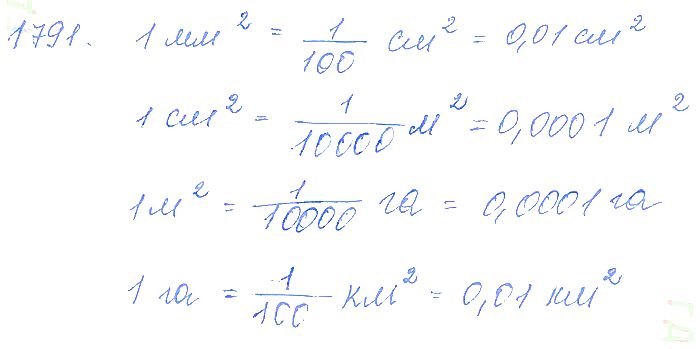 1791. 1 мм² = 1/100 см² = 0,01 см²
1 см² = 1/10000 м² = 0,0001 м²
1 м² = 1/10000 га = 0,0001 га
1 га = 1/100 км² = 0,01 км²